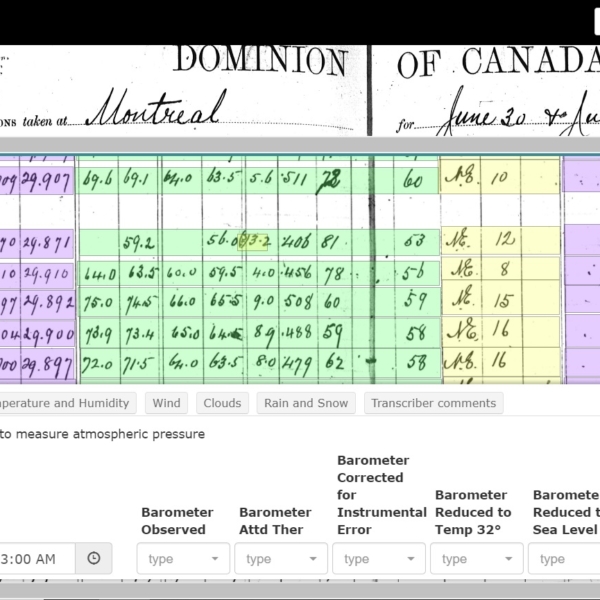 DOMINION OF CANADA
ONS taken at Montreal for June 30 & Ju
09 29.907 69.6 69.1 64.0 63.5 5.6 .511 72 60 N.E. 10
70 29.871 59.2 56.0 3.2 406 81 53 N.E. 12
10 29.910 64.0 63.5 60.0 59.5 4.0 .456 78 56 N.E. 8
97 29.892 75.0 74.5 66.0 65.5 9.0 508 60 59 N.E. 15
04 29.900 73.9 73.4 65.0 64.5 8.9 .488 59 58 N.E. 16
00 29.897 72.0 71.5 64.0 63.5 8.0 479 62 58 N.E. 16
perature and Humidity Wind Clouds Rain and Snow Transcriber comments
to measure atmospheric pressure
Barometer Observed
Barometer Attd Ther
Barometer Corrected for Instrumental Error
Barometer Reduced to Temp 32°
Baromete Reduced t Sea Level
3:00 AM type type type type type